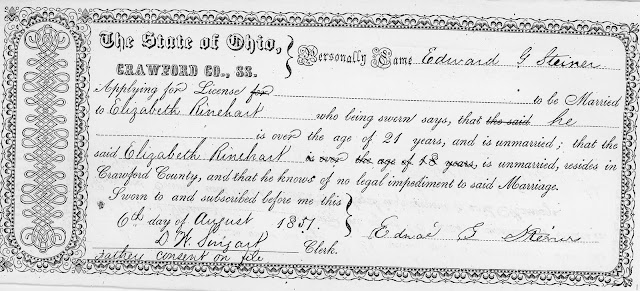 The State of Ohio, } Personally Came Edward G Steiner
CRAWFORD CO., SS.
Applying for License for to be Married
to Elizabeth Rinehart who being sworn says, that the said he
is over the age of 21 years, and is unmarried; that the
said Elizabeth Rinehart is over the age of 18 years, is unmarried, resides in
Crawford County, and that he knows of no legal impediment to said Marriage.
Sworn to and subscribed before me this
6th day of August 1851. Edward G Steiner
D W Swigart Clerk.
Fathers consent on file